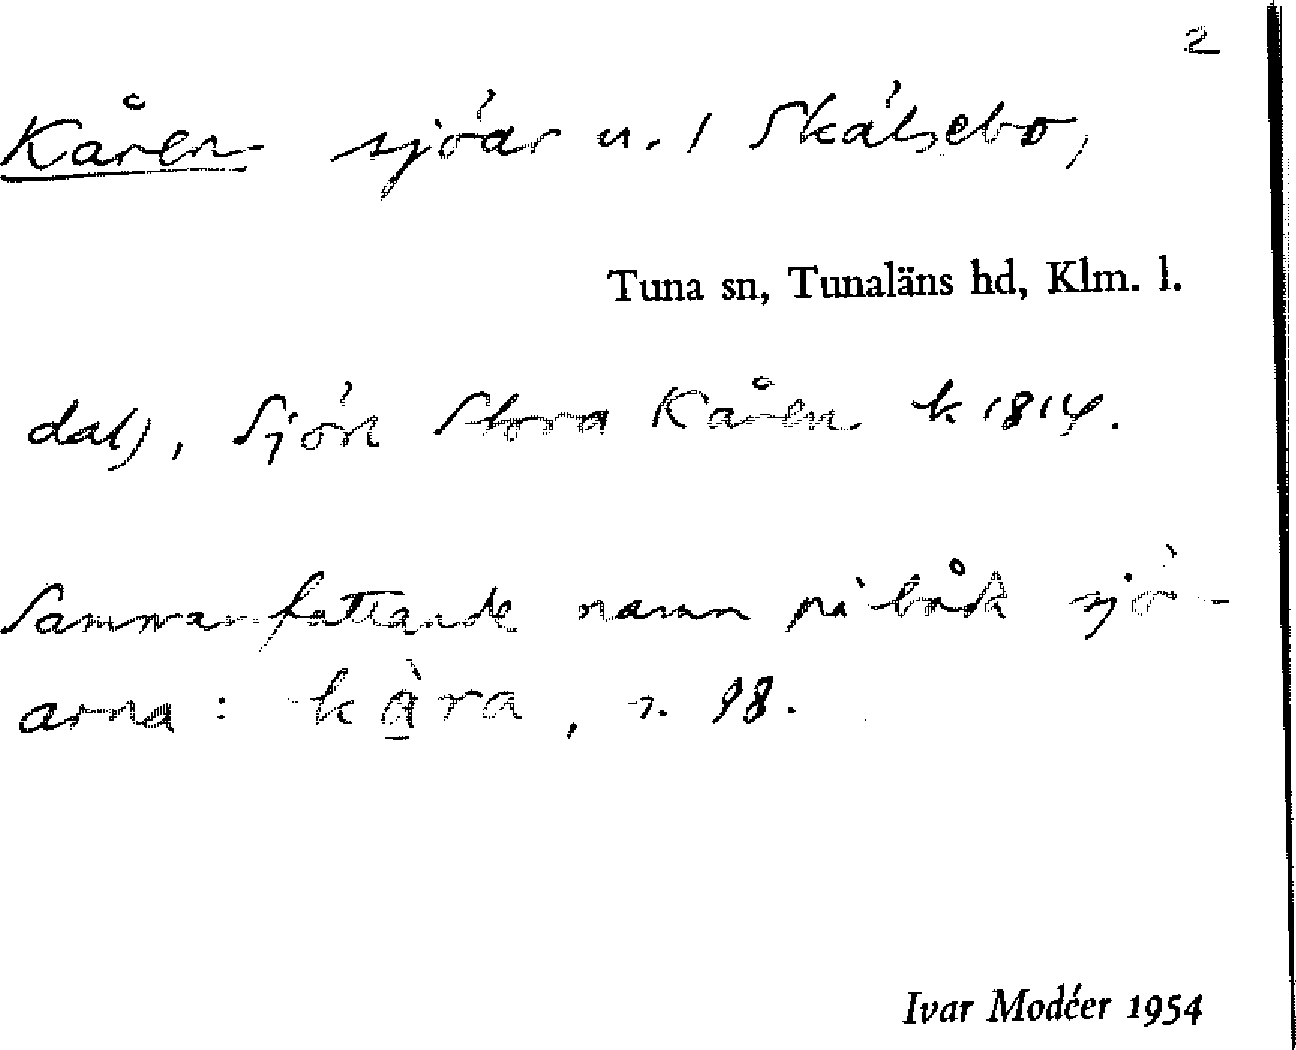 2
Kåren sjöar u. / Skälsebo,
Tuna sn, Tunaläns hd, Klm. l.
dal), Sjön Stora Kåren k 1814.
Sammanfattande namn på båda sjö-
arna: kàra, s. 98.
Ivar Modéer 1954